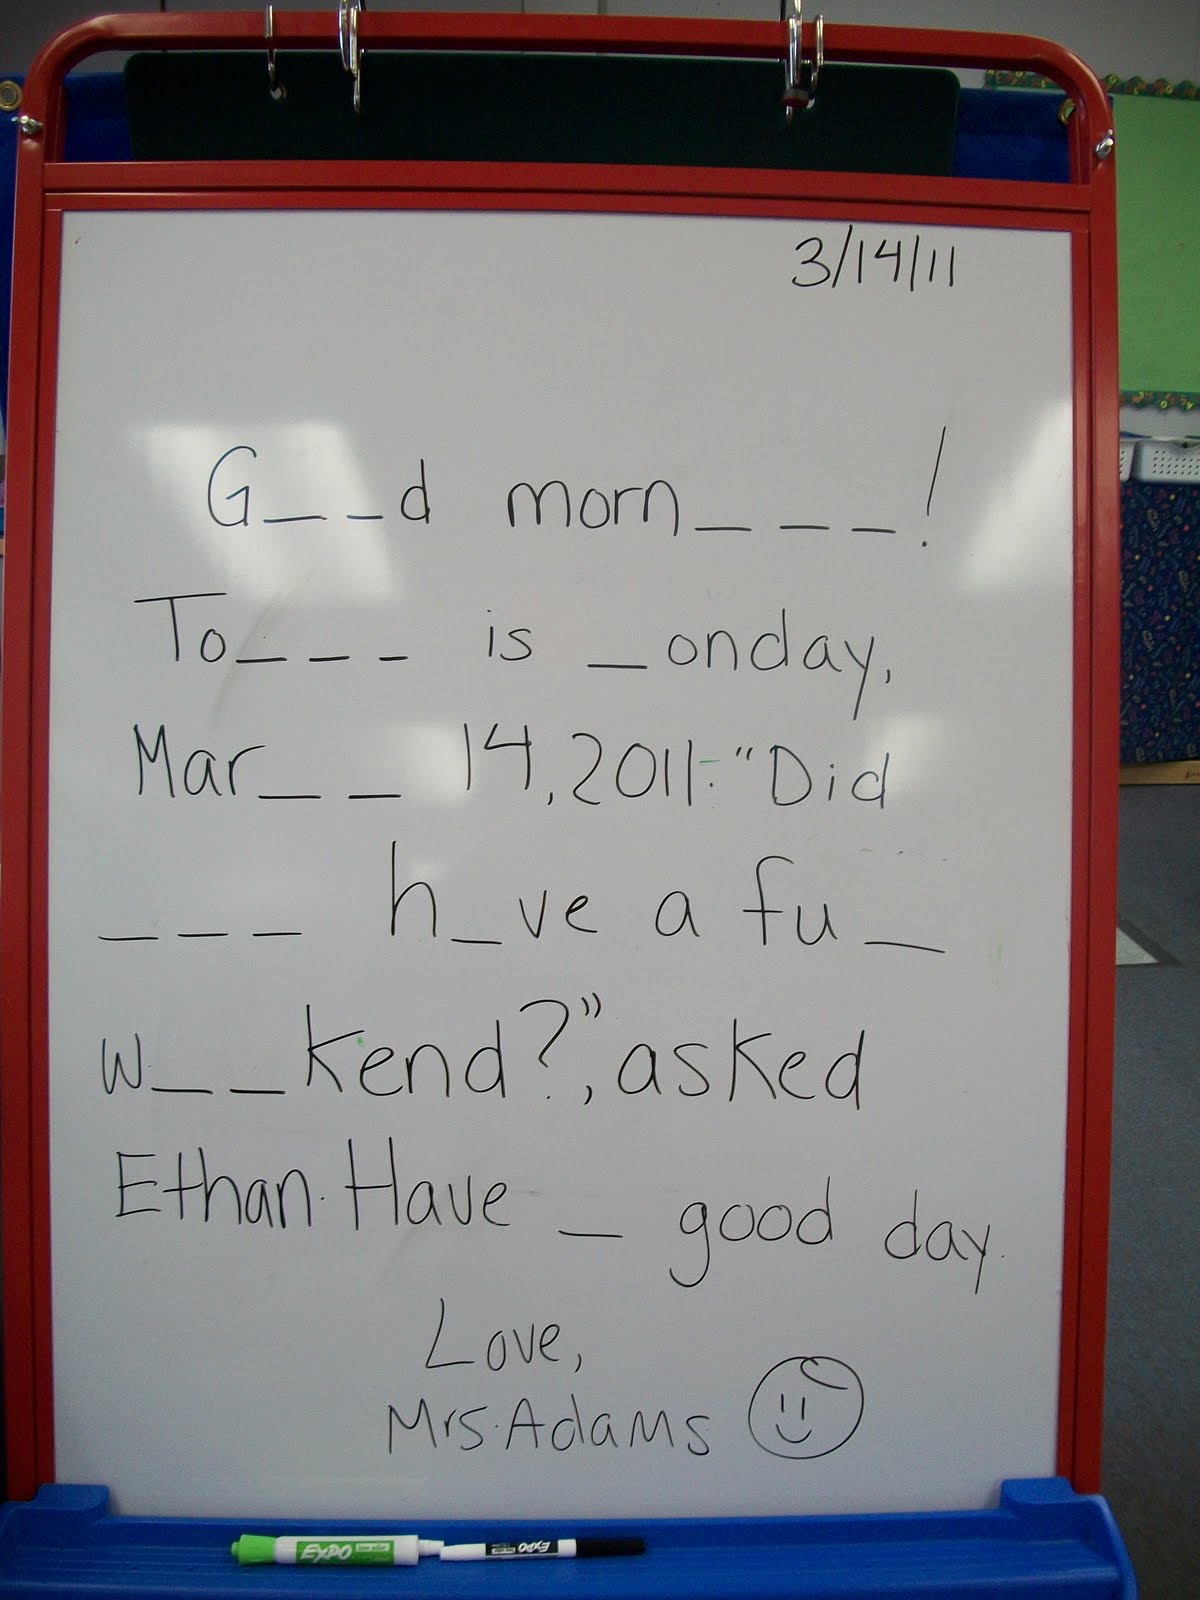 3/14/11
G_ _d morn_ _ _!
To_ _ _ is _onday,
Mar_ _ 14, 2011. "Did
_ _ _ h_ve a fu_
w_ _kend?", asked
Ethan. Have _ good day.
Love,
Mrs. Adams
EXPO
EXPO